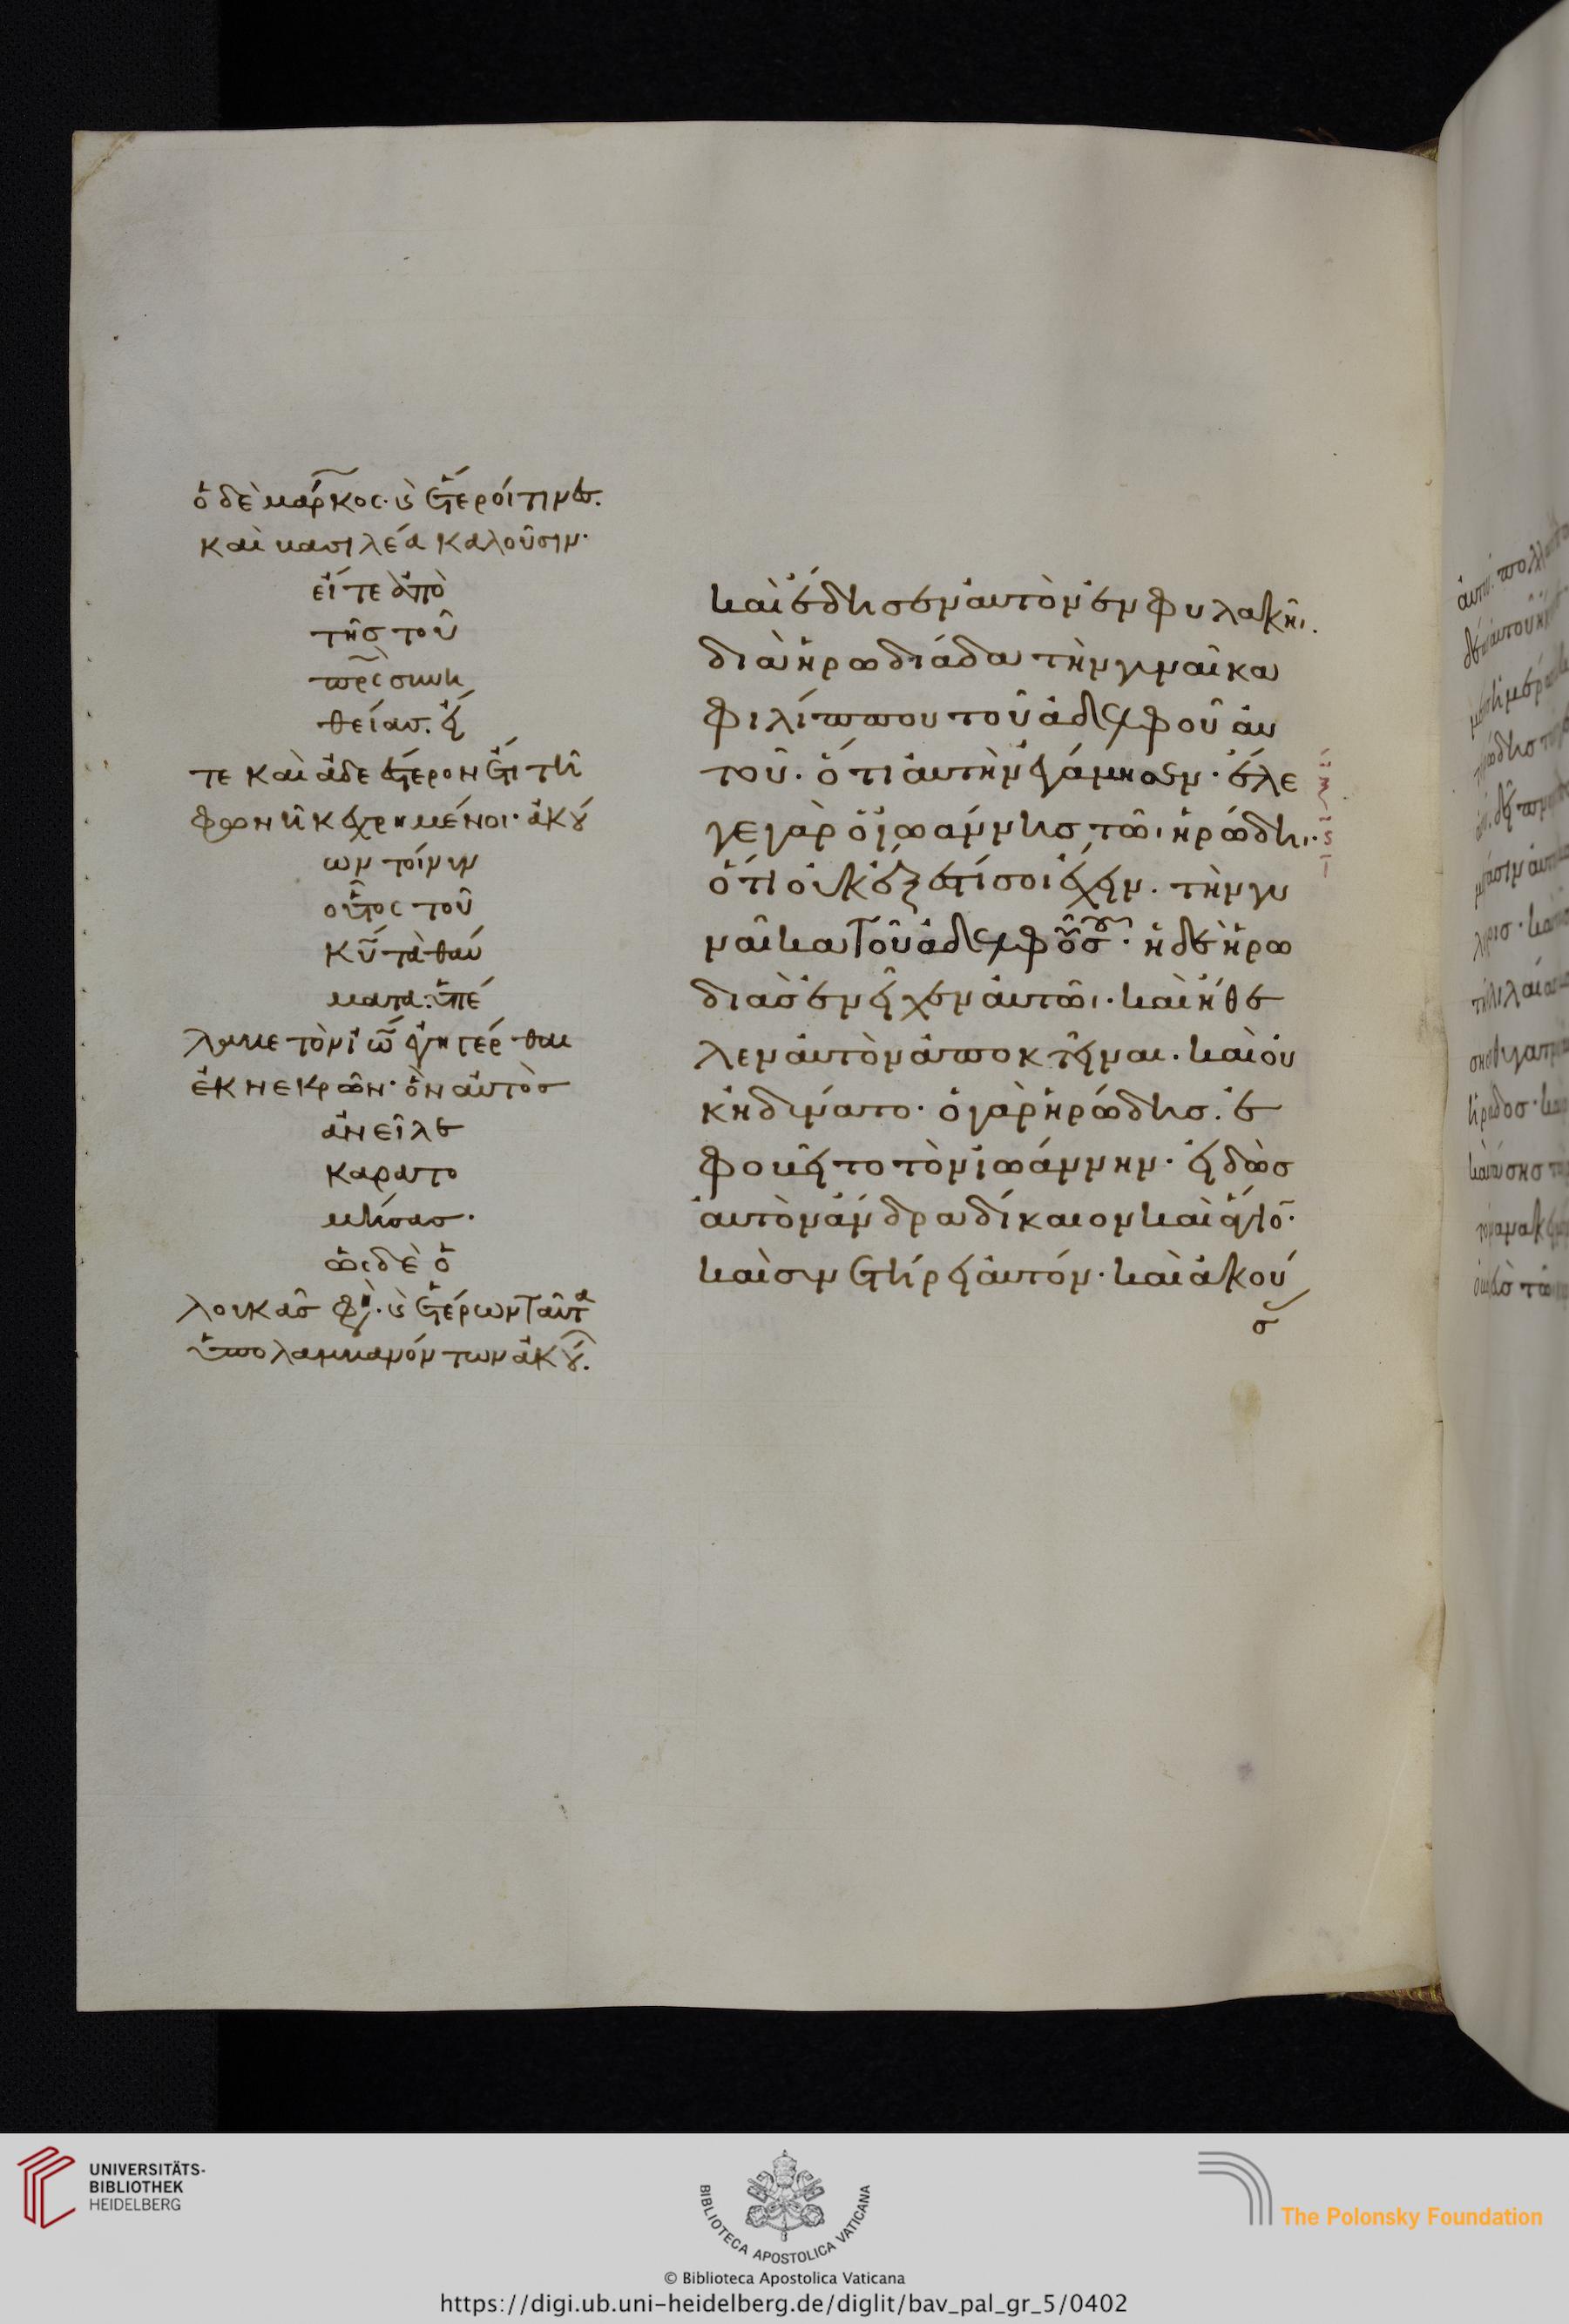 ὁ δὲ μάρκος· ὡς ἕτεροί τινες.
καὶ βασιλέα καλοῦσιν·
εἴτε ἀπὸ
τῆς τοῦ
πρ̅ς συνη
θείας. εἴ
τε καὶ ἀδεέστερον ἔτι τῆ
φωνῆ κεχρημένοι· ἀκού
ων τοίνυν
οὗτος τοῦ
κ̅υ τὰ θαύ
ματα· ὑπέ
λαβε τὸν ἰω̅ ἐγηγέρθαι
ἐκ νεκρῶν· ὃν αὐτὸς
ἀνεῖλε
καρατο
μήσας·
ὧι δὲ ὁ
λουκᾶς φη· ὡς ἑτέρων ταῦτα
ὑπολαμβανόντων ἀκού.
καὶ ἔδησεν αὐτὸν ἐν φυλακῆι.
διὰ ἡρωδιάδα τὴν γυναῖκα
φιλίππου τοῦ ἀδελφοῦ αὐ
τοῦ. ὅτι αὐτὴν ἐγάμησεν· ἔλε
γε γὰρ ὁ ἰωάννης τῶι ἡρώδηι·
ὅτι οὐκ ἔξεστί σοι ἔχειν. τὴν γυ
ναῖκα τοῦ ἀδελφοῦ σου· ἡ δὲ ἡρω
διὰς ἐνεῖχεν αὐτῶι· καὶ ἤθε
λεν αὐτὸν ἀποκτεῖναι. καὶ οὐ
κ ἠδύνατο· ὁ γὰρ ἡρώδης. ἐ
φοβεῖτο τὸν ἰωάννην· εἰδὼς
αὐτὸν ἄνδρα δίκαιον καὶ ἅγιον·
καὶ συνετήρει αὐτόν· καὶ ἀκού
σ
UNIVERSITÄTS-
BIBLIOTHEK
HEIDELBERG
BIBLIOTECA APOSTOLICA VATICANA
© Biblioteca Apostolica Vaticana
The Polonsky Foundation
https://digi.ub.uni-heidelberg.de/diglit/bav_pal_gr_5/0402